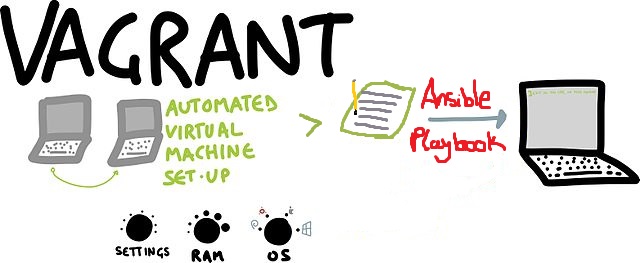 VAGRANT
AUTOMATED
VIRTUAL
MACHINE
SET-UP
>
Ansible
Playbook
SETTINGS
RAM
OS